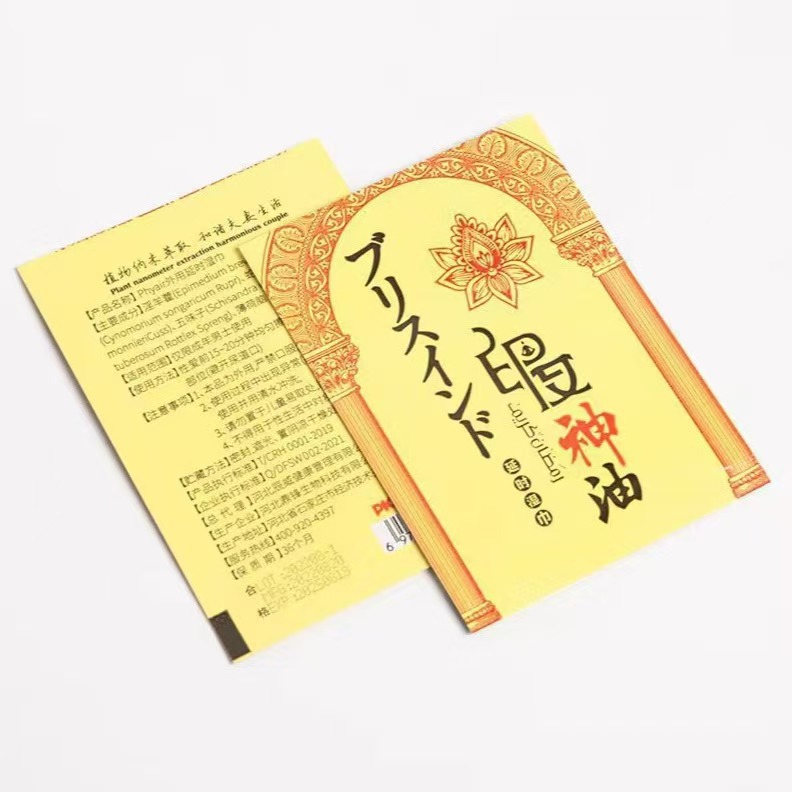 植物纳米萃取 和谐夫妻生活
Plant nanometer extraction harmonious couple
【产品名称】Phyair外用延时湿巾
【主要成分】淫羊藿(Epimedium bre
(Cynomorium songaricum Rupr),
monnieri(Cuss), 五味子(Schisandra
tuberosum Rottlex Spreng), 薄荷
【适用范围】仅限成年男士使用
【使用方法】性爱前15-20分钟均匀擦
部位(避开尿道口)
【注意事项】1、本品为外用,严禁口服
2、使用过程中出现异常
使用并用清水冲洗,
3、请勿置于儿童易取处
4、不得用于性生活中对
【贮藏方法】密封,遮光,置阴凉干燥处
【产品执行标准】T/CRH 0001-2019
【企业执行标准】Q/DFSW002-2021
【总 代 理】河北宸威健康管理有限
【生产企业】河北鼎臻生物科技有限
【生产地址】河北省石家庄市经济技术
【服务热线】400-920-4397
【保 质 期】36个月
合
格
6 97
ブリスインド
神油
延时湿巾